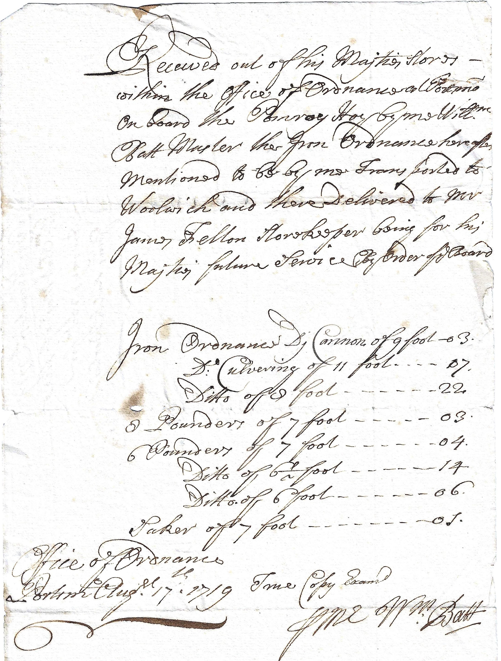 Received out of his Majties Stores
within the Office of Ordnance at Portsmo
On board the Hoy by me Willm
Batt Master the Iron Ordnance hereafter
Mentioned to be by me Transported to
Woolwich and there Delivered to Mr
James Fellon Storekeeper being for his
Majties future Service By Order of ye Board
Iron Ordnance Dj Cannon of 9 foot - 03.
Di Culvering of 11 foot - - - - 07.
Ditto of 8 foot - - - - - 22
8 Pounders of 7 foot - - - - - 03.
6 Pounders of 7 foot - - - - - 04.
Ditto of 6½ foot - - - - - - 14
Ditto of 6 foot - - - - - - - 06.
Saker of 7 foot - - - - - - - 01.
Office of Ordnance
Portsmo Augst 17th 1719 True Copy Examd
Wm Batt